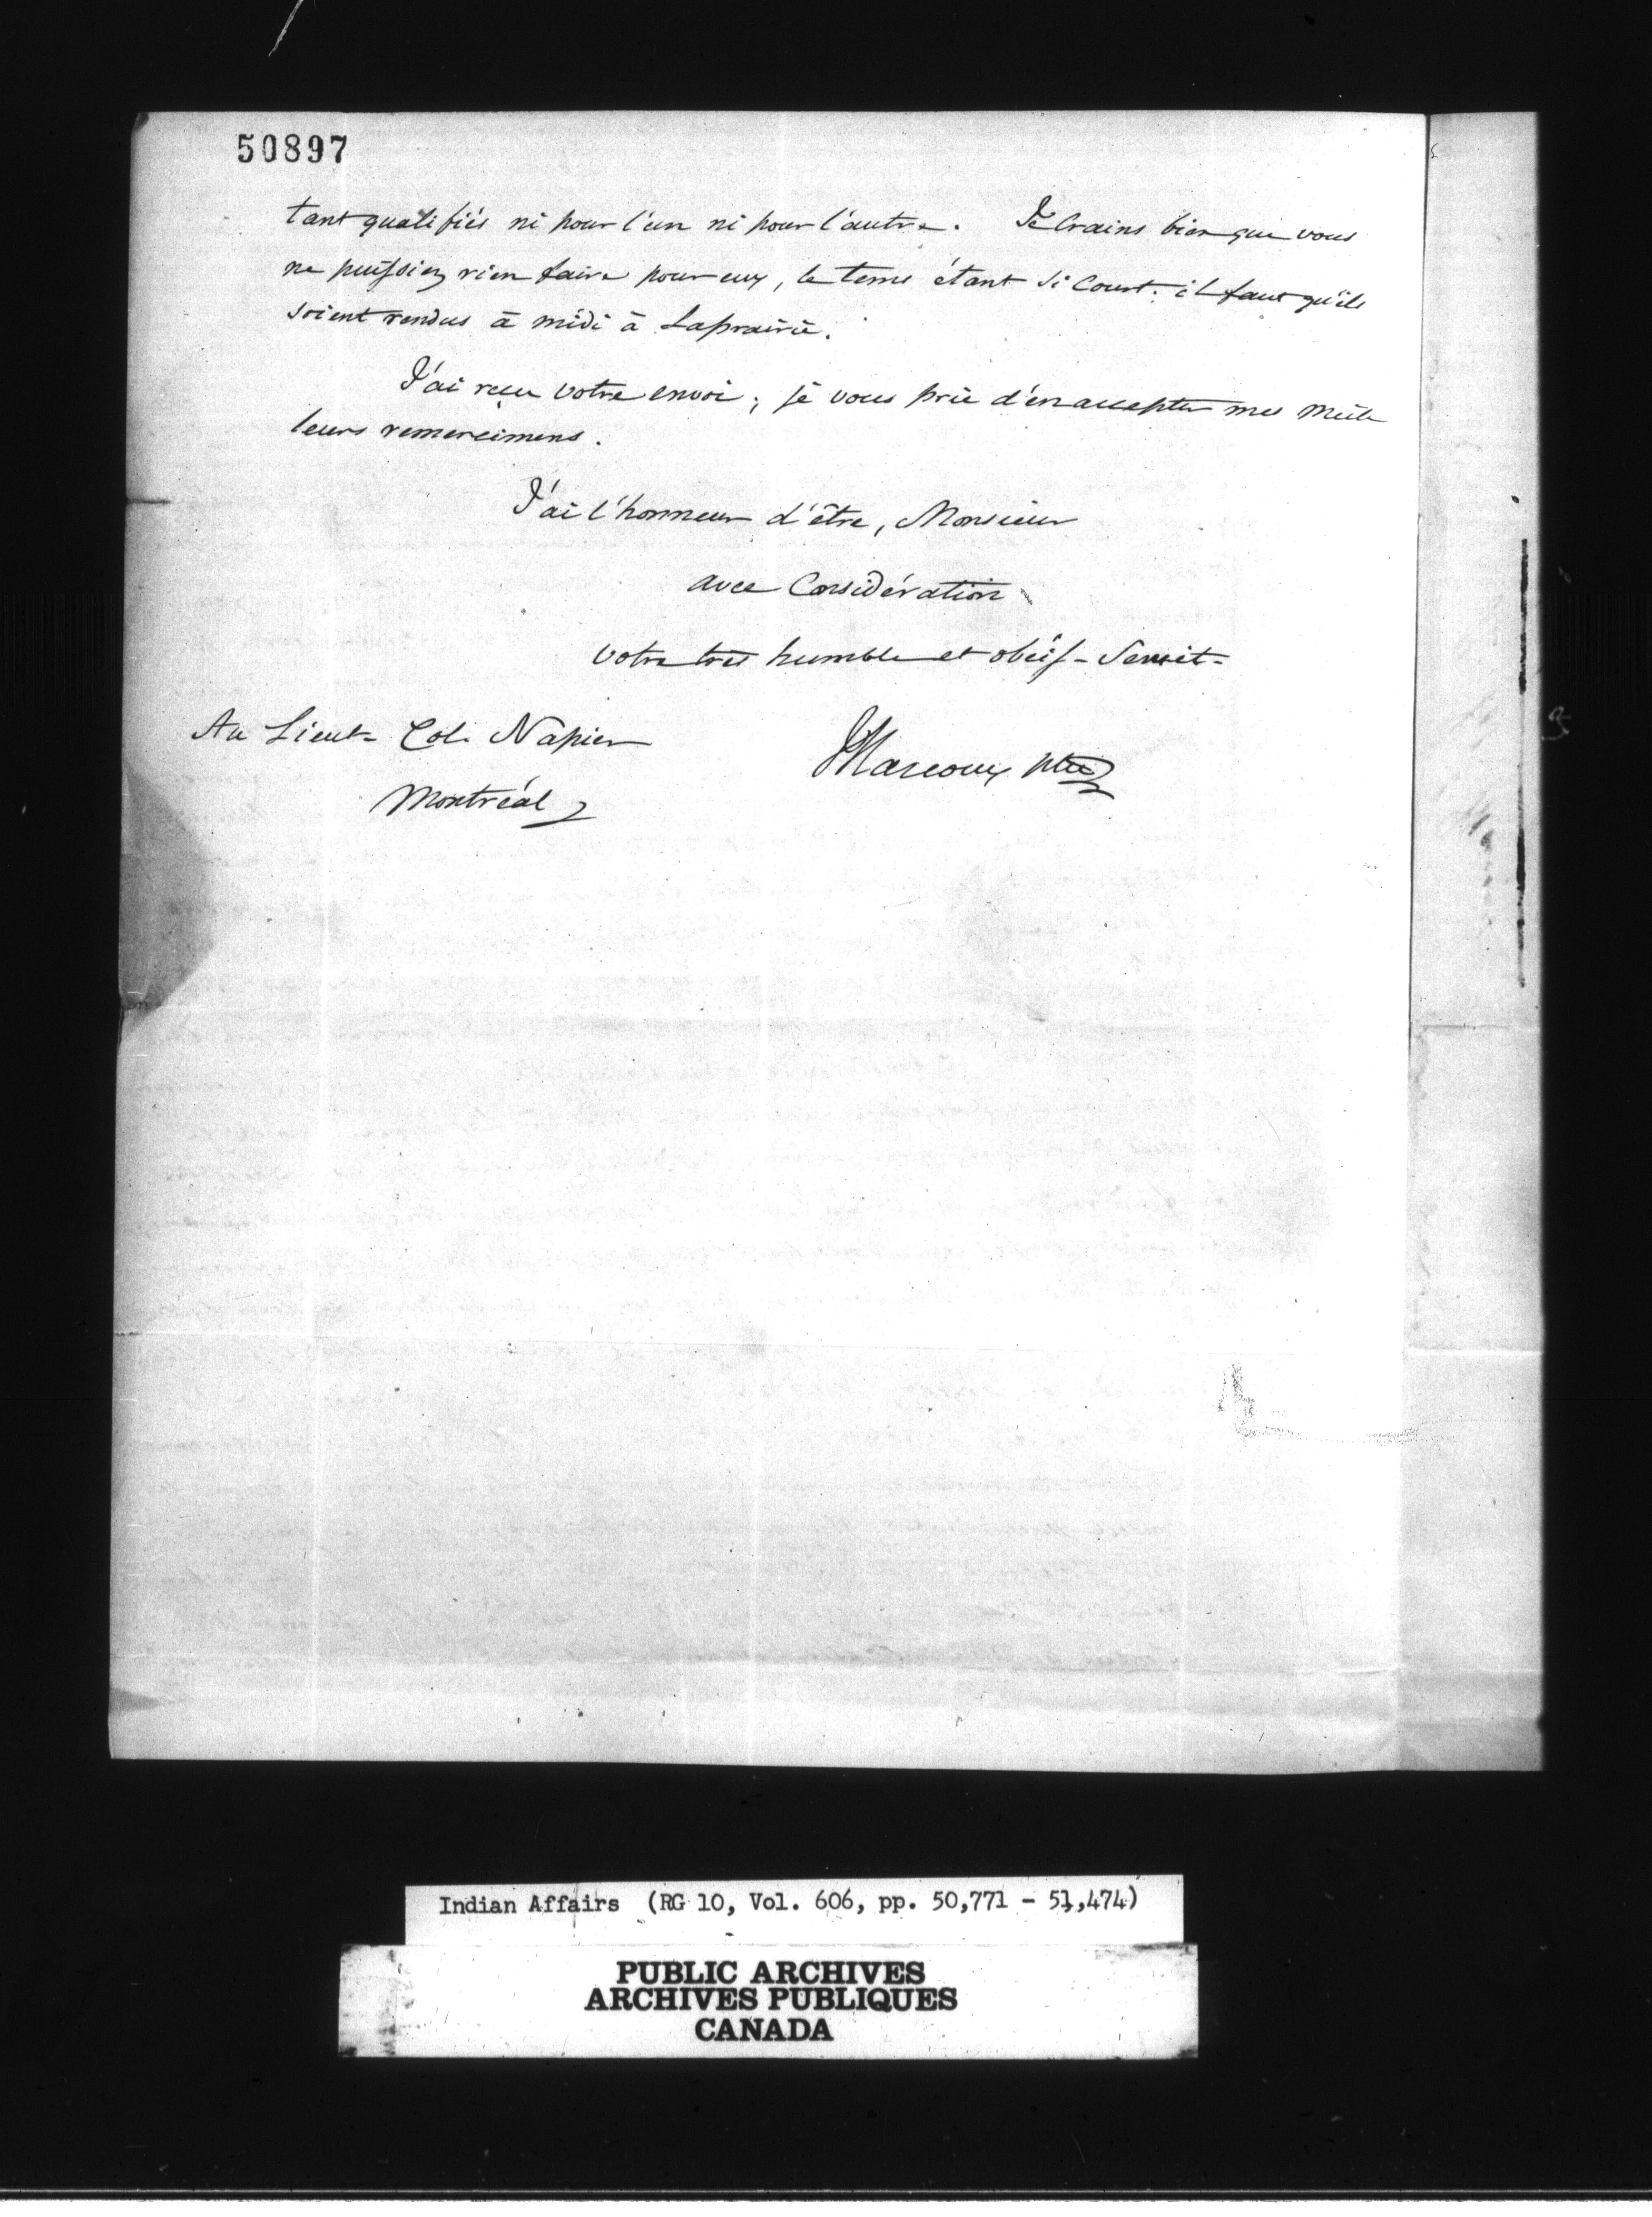 50897
tant qualifiés ni pour l'un ni pour l'autre. Je crains bien que vous
ne puissiez rien faire pour eux, le tems étant si court: il faut qu'ils
soient rendus à midi à Laprairie.
J'ai reçu votre envoi; je vous prie d'en accepter mes meil
leurs remercimens.
J'ai l'honneur d'être, Monsieur
avec Considération
votre très humble et obéiss- Servit-
Au Lieut- Col. Napier
Montréal
J Marcoux ptre
Indian Affairs (RG 10, Vol. 606, pp. 50,771 - 51,474)
PUBLIC ARCHIVES
ARCHIVES PUBLIQUES
CANADA